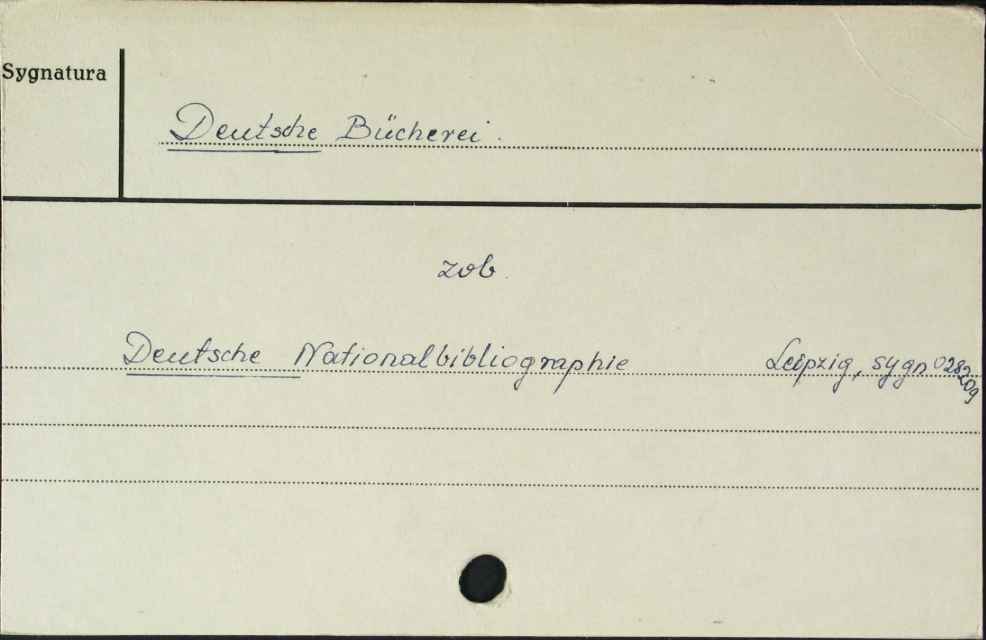 Sygnatura
Deutsche Bücherei.
zob.
Deutsche Nationalbibliographie Leipzig, sygn 028209